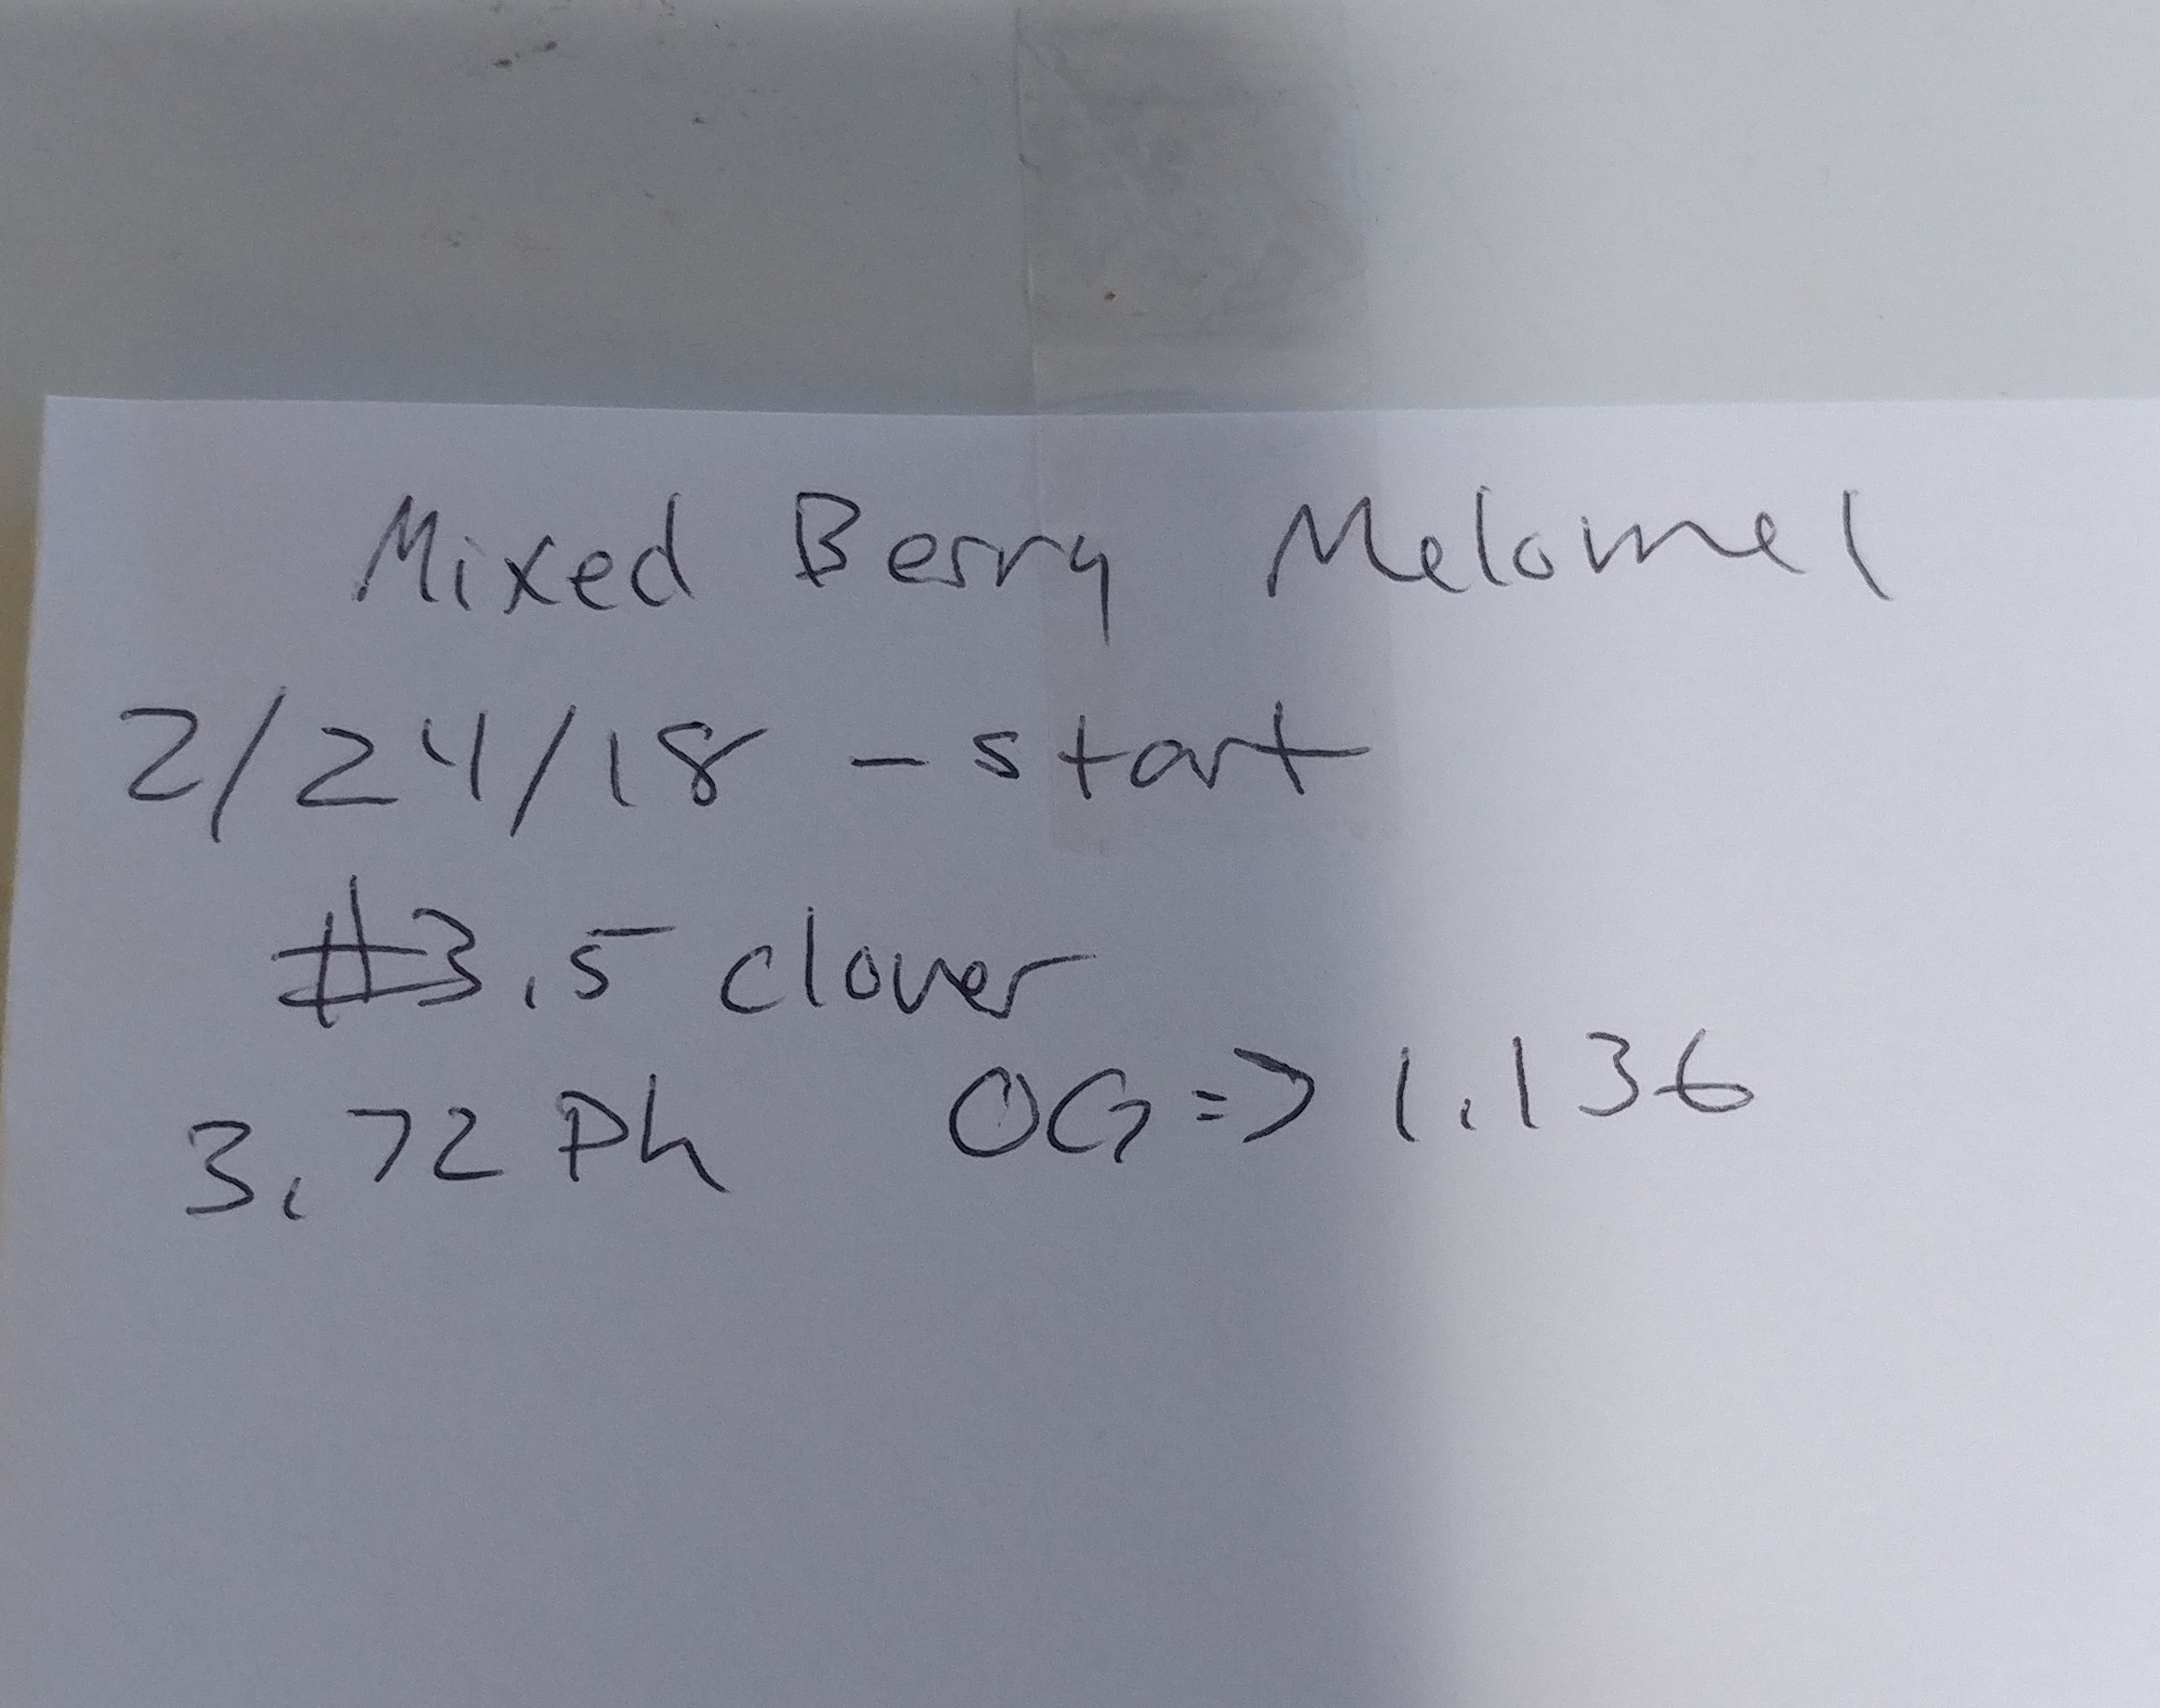 Mixed Berry Melomel
2/24/18 - start
#3.5 clover
3.72 Ph OG => 1.136